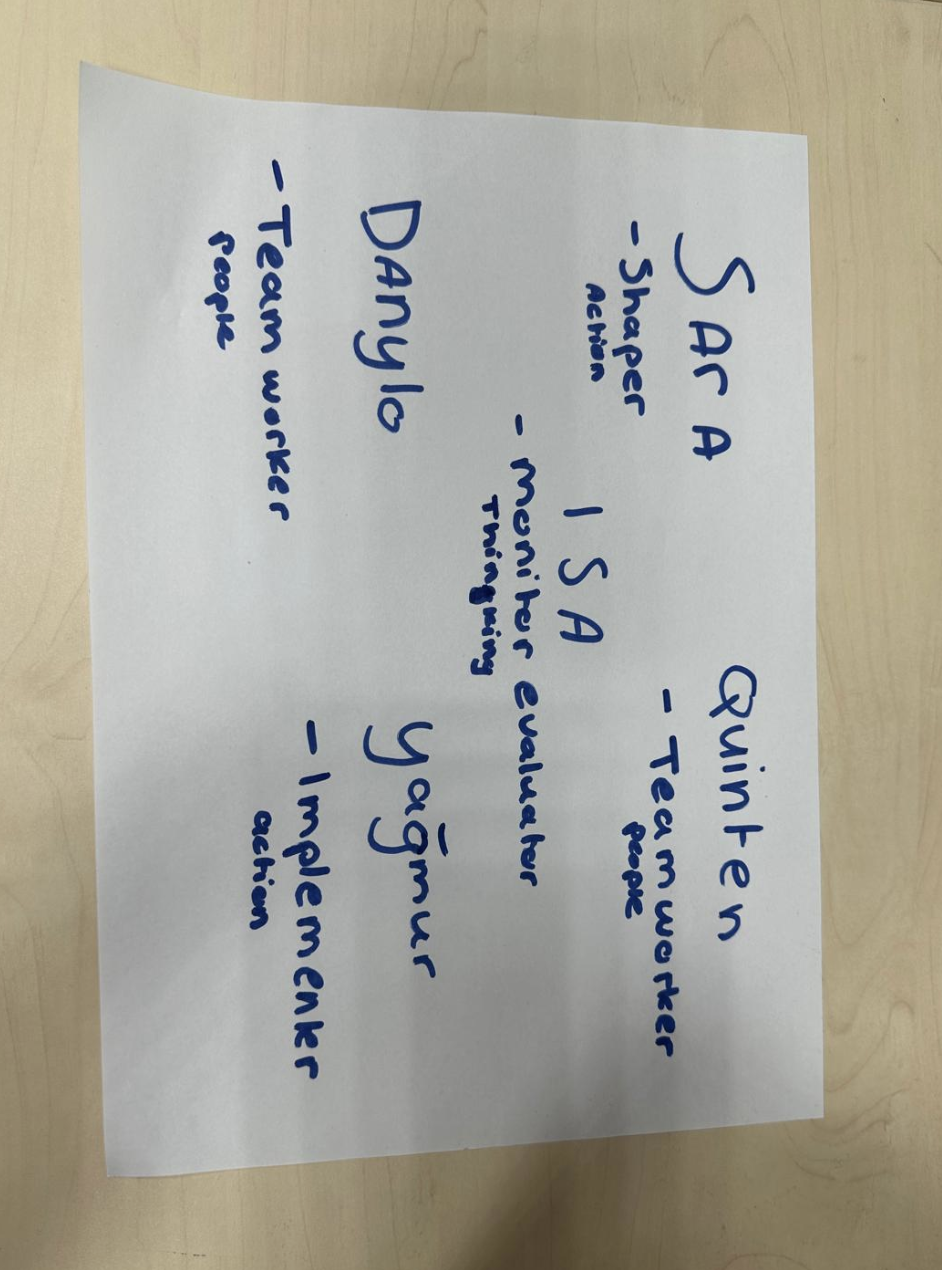 SArA
- Shaper
Action
Quinten
- Teamworker
people
ISA
- monitor evaluator
Thingking
DAnylo
- Teamworker
people
Yağmur
- Implementer
action